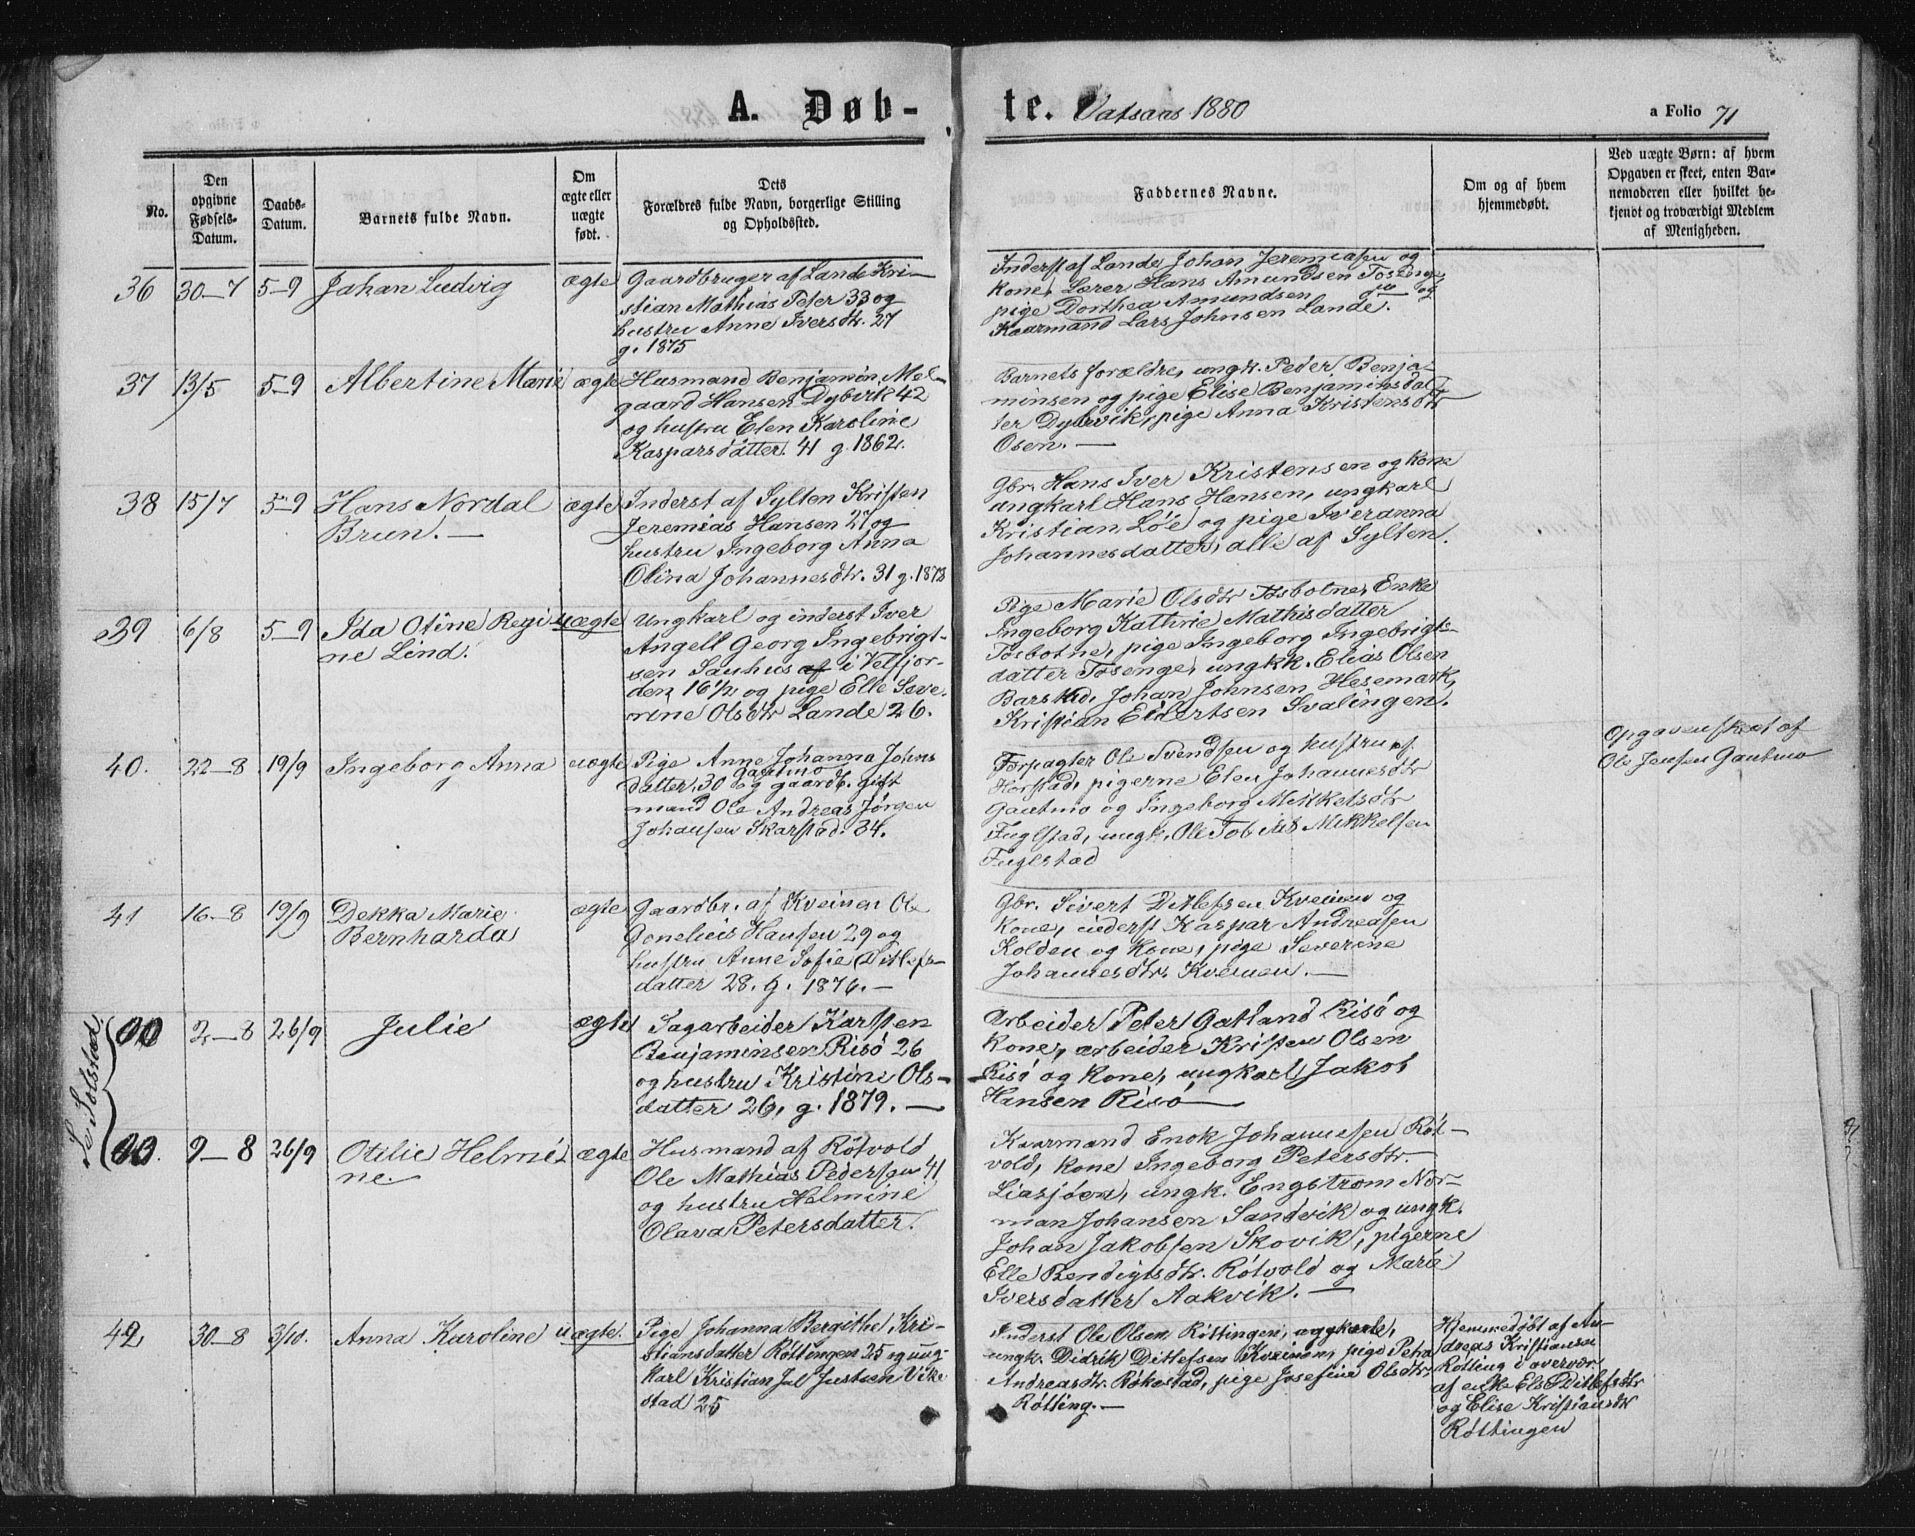 A. Døb-
te. Vatsaas 1880
a Folio 71
No.
Den opgivne Fødsels-Datum.
Daabs-Datum.
Barnets fulde Navn.
Om ægte eller uægte født.
Dets Forældres fulde Navn, borgerlige Stilling og Opholdssted.
Faddernes Navne.
Om og af hvem hjemmedøbt.
Ved uægte Børn: af hvem Opgaven er skeet, enten Barnemoderen eller hvilket bekjendt og troværdigt Medlem af Menigheden.
36 30-7 5-9 Johan Ludvig ægte
Gaardbruger af Lande Kri-
stian Mathias Peter 33 og
hustru Anne Iversdtr. 27
g. 1875
Inderst af Lande Johan Jeremiasen og
kone, Lærer Hans Amundsen Tosenge,
pige Dorthea Amundsen og
Kaarmand Lars Johnsen Lande.
37 13/5 5-9 Albertine Marie ægte
Husmand Benjamin Mel-
gaard Hansen Dybvik 42
og hustru Elen Karoline
Kasparsdatter. 41 g. 1862.
Barnets forældre, ungk. Peder Benja-
minsen og pige Elise Benjaminsdat-
ter Dybvik, pige Anna Kristensdtr
Osen. —
38 15/7 5-9 Hans Nordal
Brun. — ægte
Inderst af Sylten Kristen
Jeremias Hansen 27 og
hustru Ingeborg Anna
Olina Johannesdtr. 31 g. 1878
Gbr. Hans Iver Kristensen og kone
ungkarl Hans Hansen, ungkarl
Kristian Løe og pige Iveranna
Johannesdatter, alle af Sylten.
39 6/8 5-9 Ida Otine Regi-
ne Lind. uægte
Ungkarl og inderst Iver
Angell Georg Ingebrigt-
sen Sauhus af i Velfjor-
den 16 1/2 og pige Elle Seve-
rine Olsdtr Lande 26.
Pige Marie Olsdtr Tosbotne, Enke
Ingeborg Kathrie Mathisdatter
Tosbotne, pige Ingeborg Ingebrigts-
datter Tosenge, ungkk. Elias Olsen
Barskid, Johan Johnsen Hesemark,
Kristian Eidertsen Svalingen.
40. 22-8 19/9 Ingeborg Anna uægte
Pige Anne Johanna Johns
datter 30 Gautmo og gaardb. gift
mand Ole Andreas Jørgen
Johansen Skarstad. 34.
Forpagter Ole Svendsen og hustru af
Horstad, pigerne Elen Johannesdtr
Gautmo og Ingeborg Mikkelsdtr
Fuglstad, ungk. Ole Tobias Mikkelsen
Fuglstad
Opgaven skeet af
Ole Jensen Gautmo
41 16-8 19/9 Dekka Marie
Bernharda ægte
Gaardbr. af Kveinen Ole
Hansen 29 og
hustru Anne Sofie Ditlefs-
datter 28. g. 1876. —
Gbr. Sivert Ditlefsen Kveinen og
Kone, inderst Kaspar Andreasen
Kolden og Kone, pige Severine
Johannesdtr. Kveinen. —
Se Solstad.
00 2-8 26/9 Julie ægte
Sagarbeider Karsten
Benjaminsen Risø 26
og hustru Kristine Ols-
datter 26, g. 1879. —
Arbeider Peter Gatland Risø og
Kone, arbeider Kristen Olsen
Risø og Kone, ungkarl Jakob
Hansen Risø —
00. 9-8 26/9 Otilie Helmi-
ne. ægte
Husmand af Røtvold
Ole Mathias Pedersen 41
og hustru Helmine
Olava Petersdatter.
Kaarmand Enok Johannesen Røt-
vold, Kone Ingeborg Petersdtr.
Liasjøen, ungk. Engstrøm Nor-
man Johansen Sandvik og ungk.
Johan Jakobsen Skovik, pigerne
Elle Bendigtsdtr. Røtvold og Marie
Iversdatter Aakvik. —
42 30-8 3/10. Anna Karoline uægte.
Pige Johanna Bergithe Kri-
stiansdatter Røttingen 25 og ung-
karl Kristian Jul Justsen Vike
stad 25
Inderst Ole Olsen Røttingen,
ungk. Didrik Ditlefsen Kveinen, pige Petra
Andreasdtr. Røkestad, pige Josefine Olsdtr
Røtting. —
Hjemmedøbt af An-
dreas Kristiansen
Røtting i overvær
af enke Els Ditlefsdtr
og Elise Kristiansdtr
Røttingen